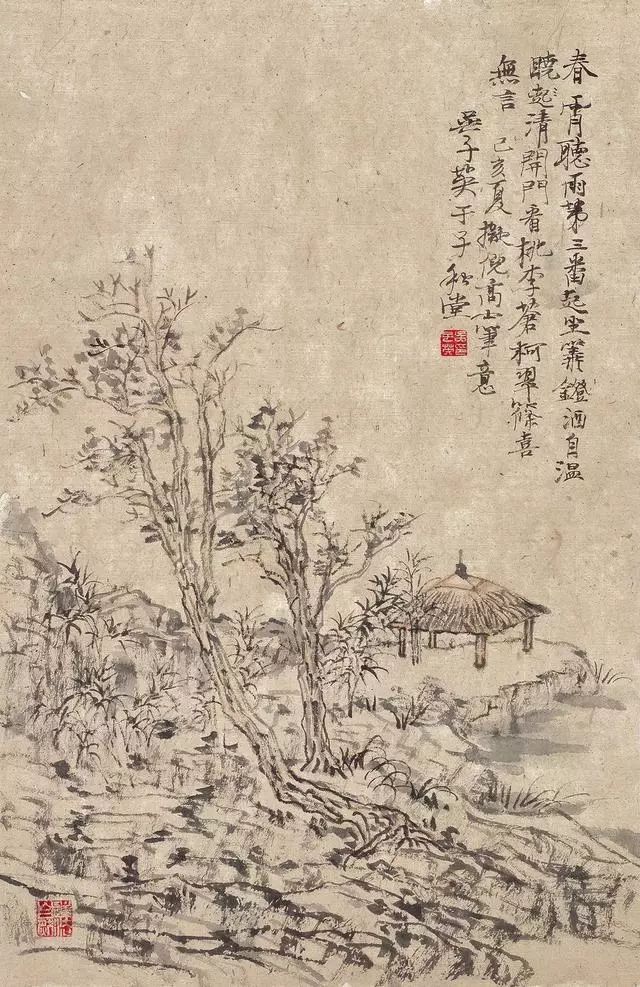 春宵聽雨第三番起坐篝鐙酒自温
曉起清開門看桃李蒼柯翠篠喜
無言 己亥夏擬倪高士筆意
吳子英于子秋堂